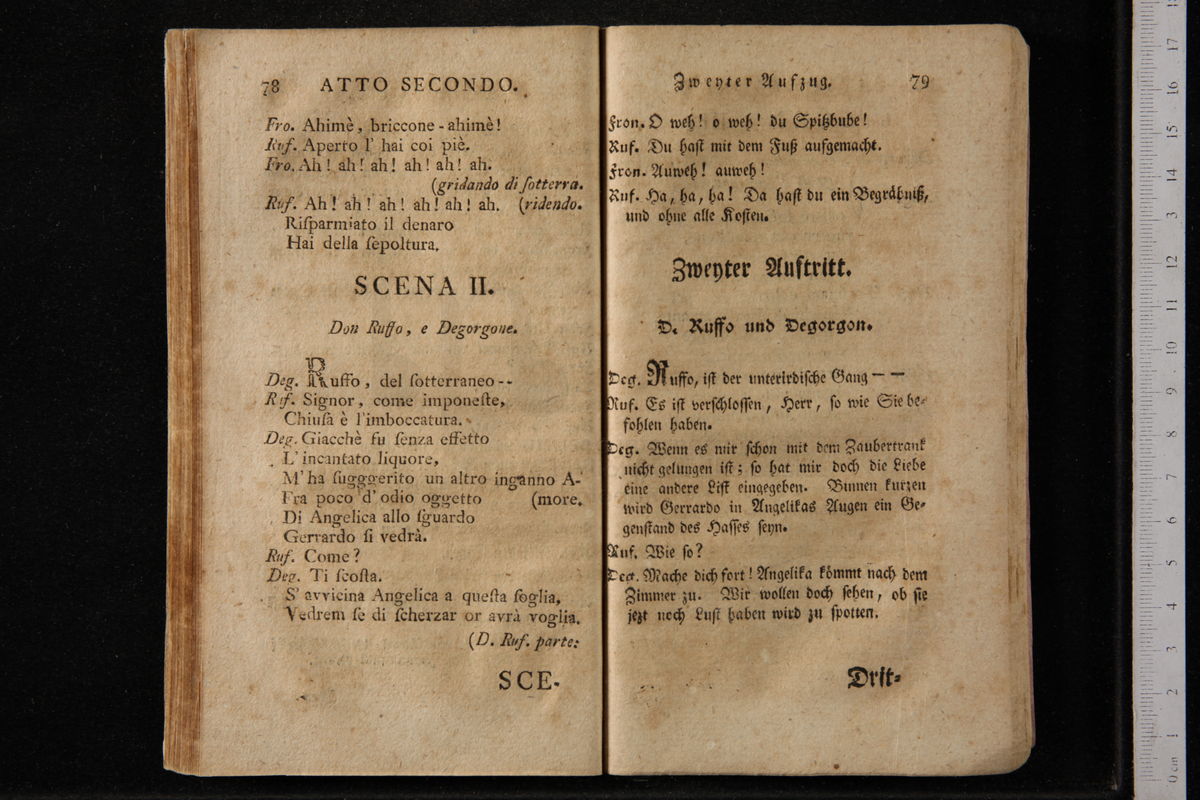 78 ATTO SECONDO.
Fro. Ahimè, briccone - ahimè!
Ruf. Aperto l' hai coi piè.
Fro. Ah! ah! ah! ah! ah! ah.
(gridando di ſotterra.
Ruf. Ah! ah! ah! ah! ah! ah. (ridendo.
Riſparmiato il denaro
Hai della ſepoltura.
SCENA II.
Don Ruffo, e Degorgone.
Deg. Ruffo, del ſotterraneo --
Ruf. Signor, come imponeſte,
Chiuſa è l'imboccatura.
Deg. Giacchè fu ſenza effetto
L' incantato liquore,
M' ha ſugggerito un altro inganno A-
Fra poco d' odio oggetto (more.
Di Angelica allo ſguardo
Gerrardo ſi vedrà.
Ruf. Come?
Deg. Ti ſcoſta.
S' avvicina Angelica a queſta ſoglia,
Vedrem ſe di ſcherzar or avrà voglia.
(D. Ruf. parte:
SCE-
Zweyter Aufzug. 79
Fron. O weh! o weh! du Spitzbube!
Ruf. Du haſt mit dem Fuß aufgemacht.
Fron. Auweh! auweh!
Ruf. Ha, ha, ha! Da haſt du ein Begräbniß,
und ohne alle Koſten.
Zweyter Auftritt.
D. Ruffo und Degorgon.
Deg. Ruffo, iſt der unterirdiſche Gang — —
Ruf. Es iſt verſchloſſen, Herr, ſo wie Sie be-
fohlen haben.
Deg. Wenn es mir ſchon mit dem Zaubertrank
nicht gelungen iſt; ſo hat mir doch die Liebe
eine andere Liſt eingegeben. Binnen kurzen
wird Gerrardo in Angelikas Augen ein Ge-
genſtand des Haſſes ſeyn.
Ruf. Wie ſo?
Deg. Mache dich fort! Angelika kömmt nach dem
Zimmer zu. Wir wollen doch ſehen, ob ſie
jezt noch Luſt haben wird zu ſpotten.
Drit-
0 cm 1 2 3 4 5 6 7 8 9 10 11 12 13 14 15 16 17